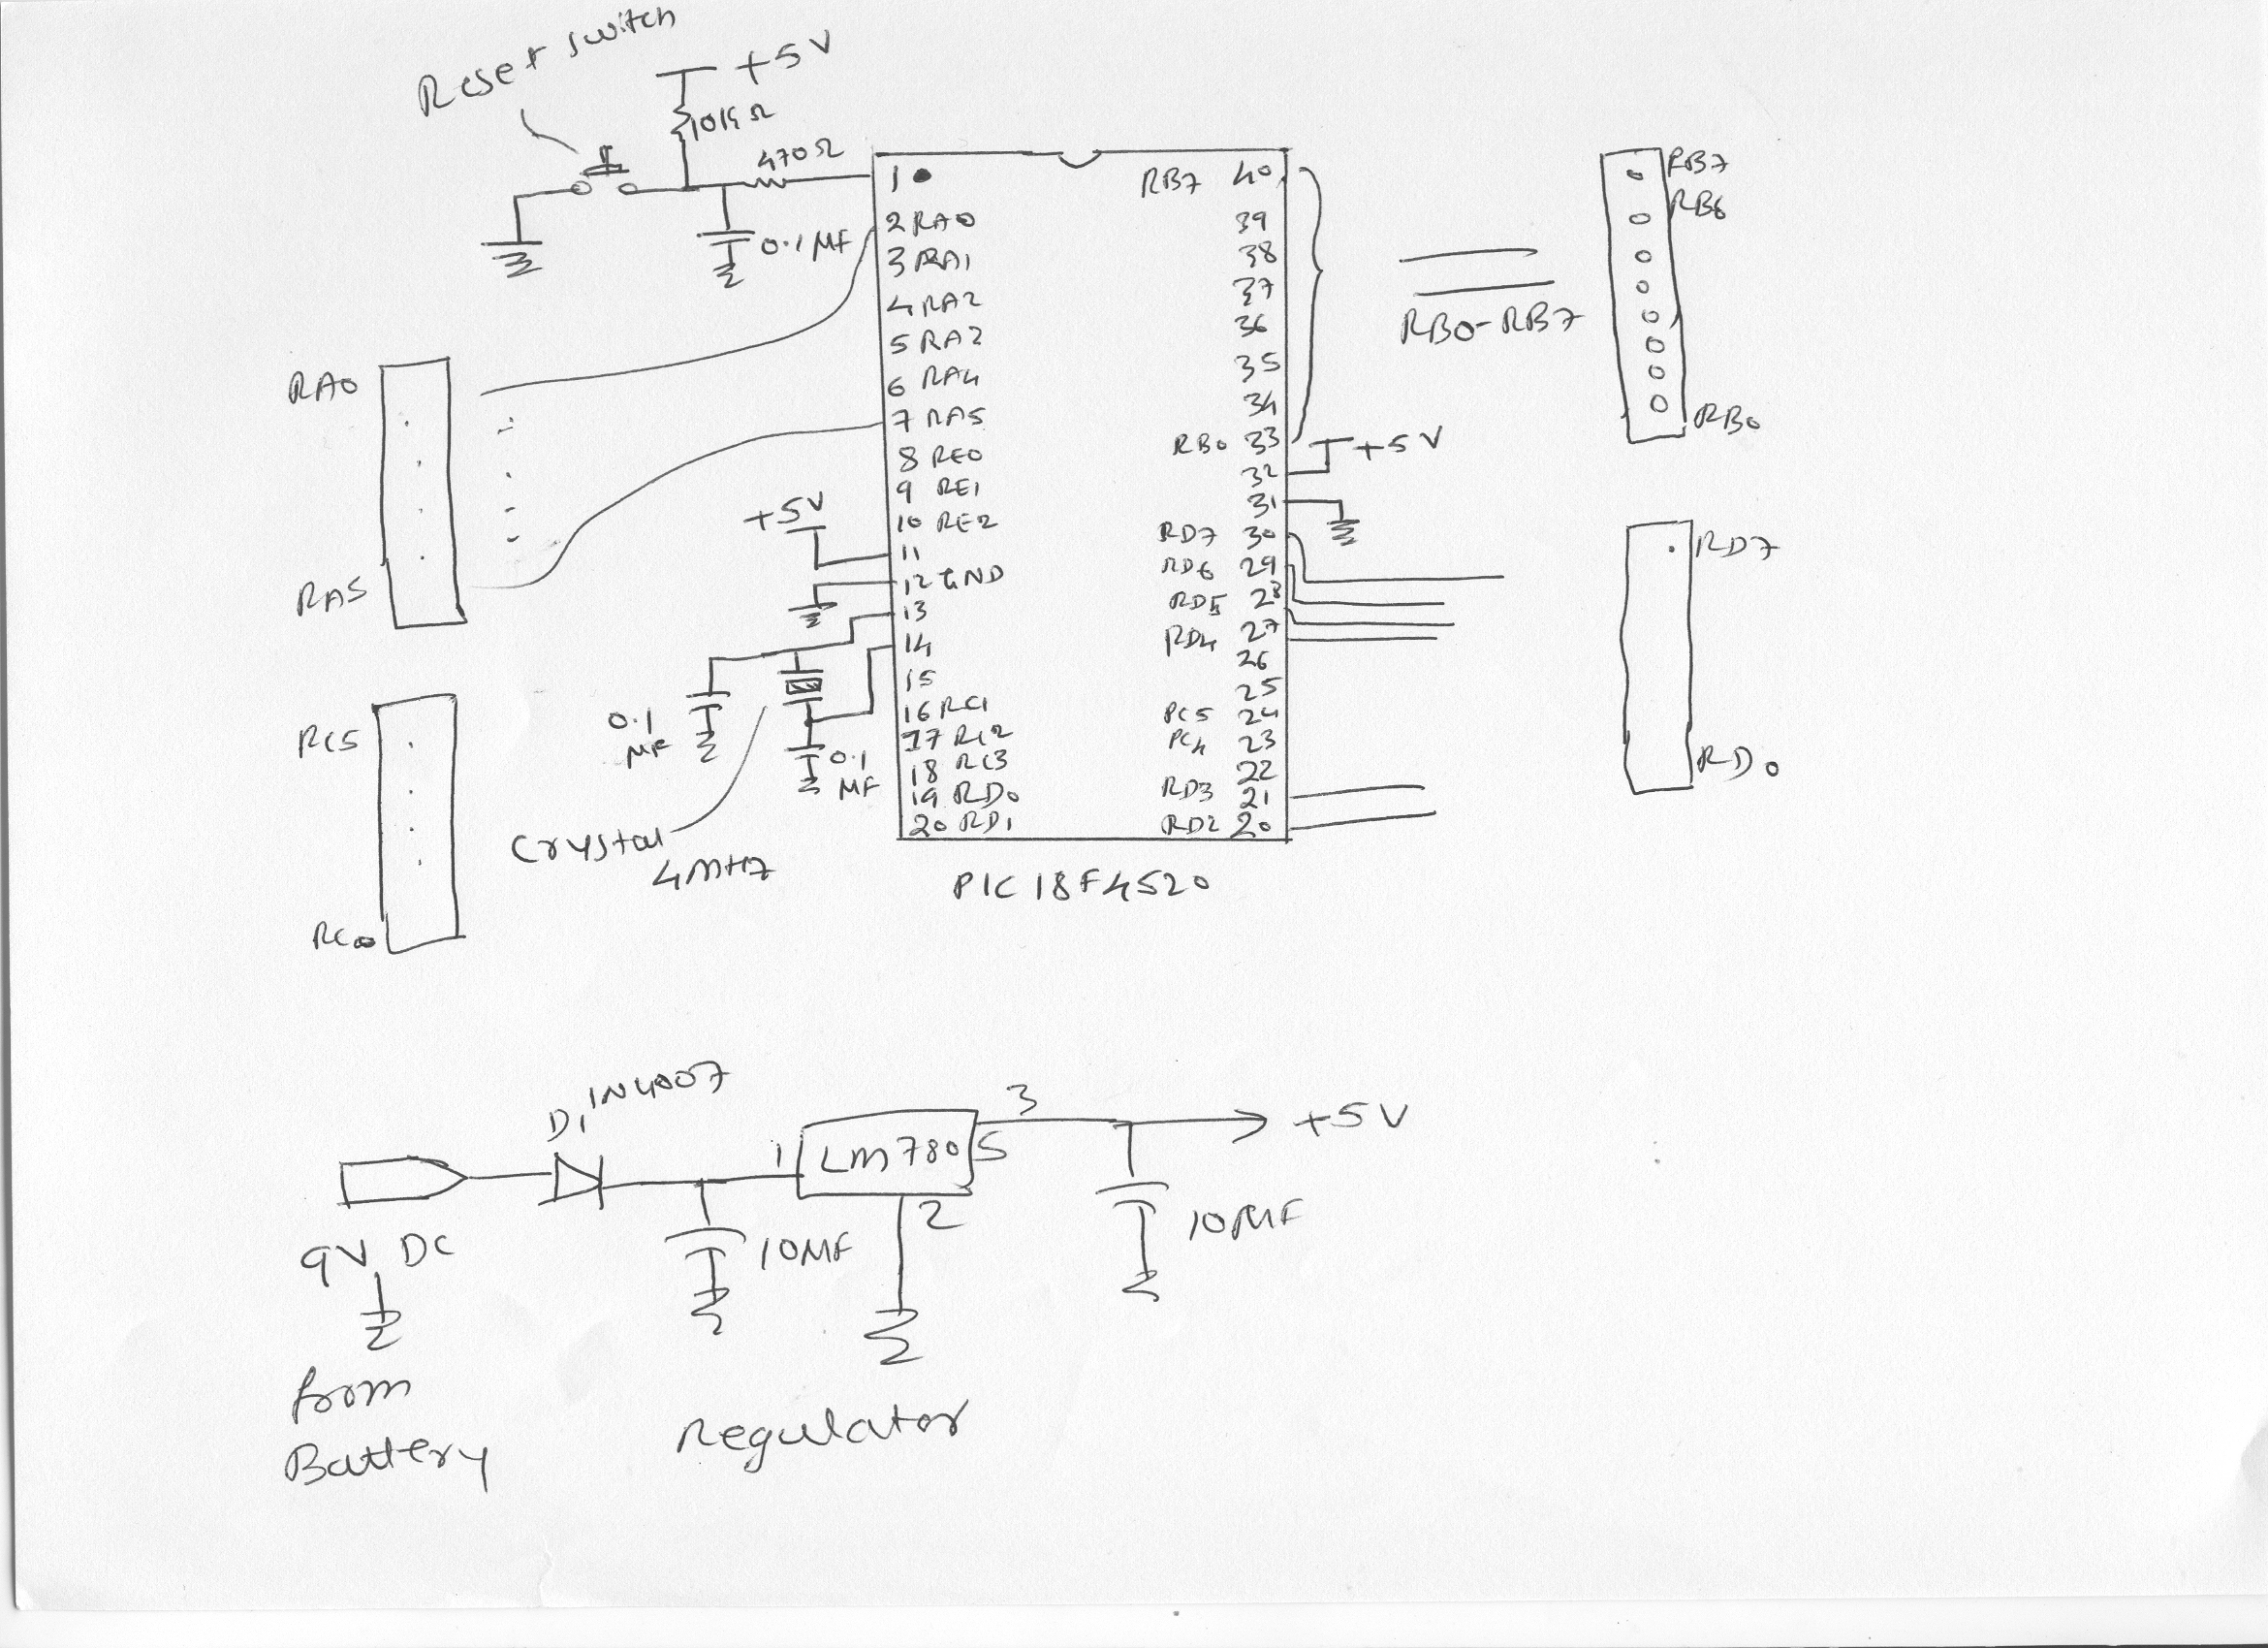 Reset switch
+5V
10KΩ
470Ω
0.1 MF
1
2 RA0
3 RA1
4 RA2
5 RA2
6 RA4
7 RA5
8 RE0
9 RE1
10 RE2
11
12 GND
13
14
15
16 RC1
17 RC2
18 RC3
19 RD0
20 RD1
RB7 40
39
38
37
36
35
34
RB0 33
32
31
RD7 30
RD6 29
RD5 28
RD4 27
26
25
PC5 24
PC4 23
22
RD3 21
RD2 20
PIC18F4520
RA0
RA5
RC5
RC0
+5V
0.1
MF
0.1
MF
Crystal
4MHZ
+5V
RB0-RB7
RB7
RB6
RB0
RD7
RD0
9V DC
from
Battery
D1 1N4007
1
LM7805
3
2
10MF
10MF
+5V
Regulator